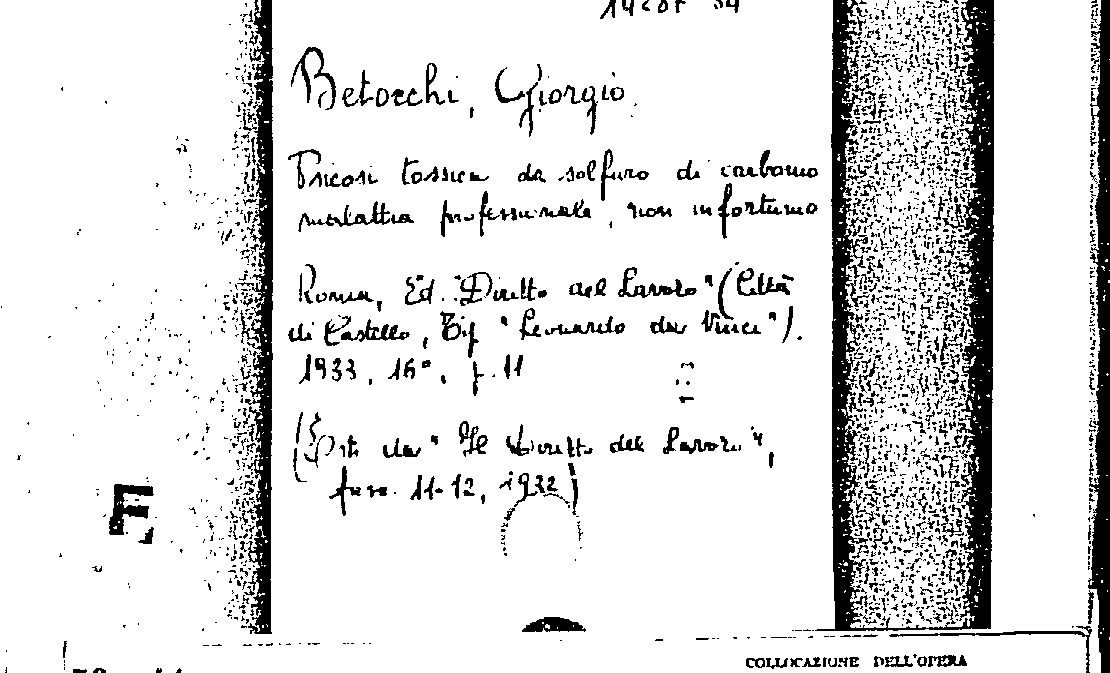 Betocchi, Giorgio.
Psicosi tossica da solfuro di carbonio
malattia professionale, non infortunio
Roma, Ed. "Diritto del Lavoro" (Città
di Castello, Tip. "Leonardo da Vinci").
1933, 16°, p. 11
(Estr. da "Il Diritto del Lavoro",
fasc. 11-12, 1932)
COLLOCAZIONE DELL'OPERA